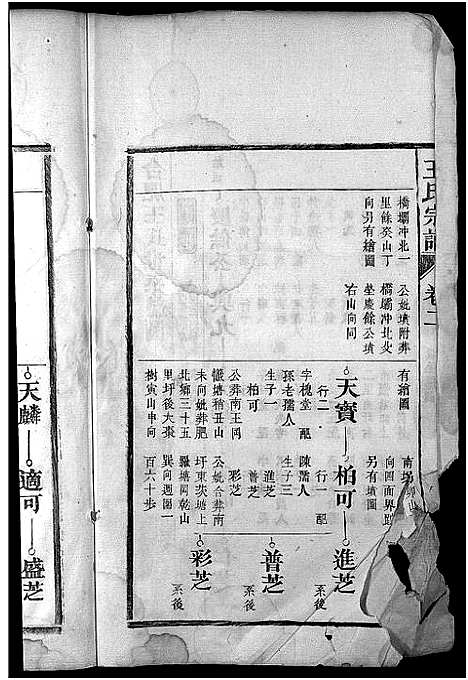 王氏宗譜
卷二
有繪圖
南塝
向四面界趾
另有墳圖
公妣墳附葬
橋壩冲北火
坐慶餘公墳
右山向同
橋壩冲北一
里餘癸山丁
向另有繪圖
天寶
柏可
進芝
行二
字槐堂 配
孫老孺人
生子一
柏可
公葬南王岡
懺塘稍丑山
未向妣葬肥
北鄉三十五
里圩後大棗
樹寅山申向
行一 配
陳孺人
生子三
進芝
普芝
彩芝
公妣合葬南
圩東茨塘上
塘岡乾山
巽向週圍一
百六十步
系後
普芝
系後
彩芝
系後
天麟
適可
盛芝